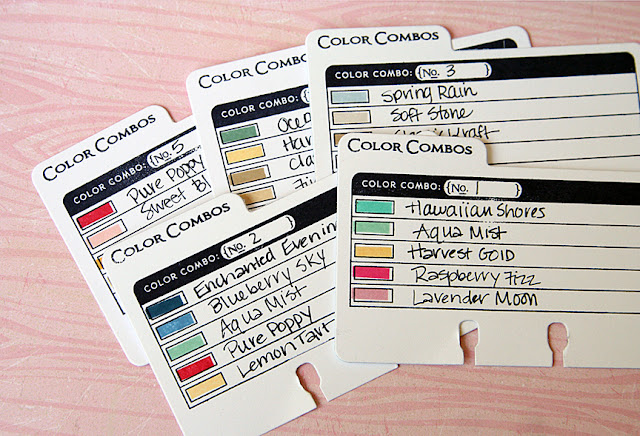 COLOR COMBOS
COLOR COMBO: No. 3
Spring Rain
Soft Stone
Classic Kraft
COLOR COMBOS
COLOR COMBO:
COLOR COMBOS
COLOR COMBO: No. 5
Pure Poppy
Sweet
COLOR COMBOS
COLOR COMBO: No. 1
Hawaiian Shores
Aqua Mist
Harvest Gold
Raspberry Fizz
Lavender Moon
COLOR COMBOS
COLOR COMBO: No. 2
Enchanted Evenin
Blueberry Sky
Aqua Mist
Pure Poppy
Lemon Tart